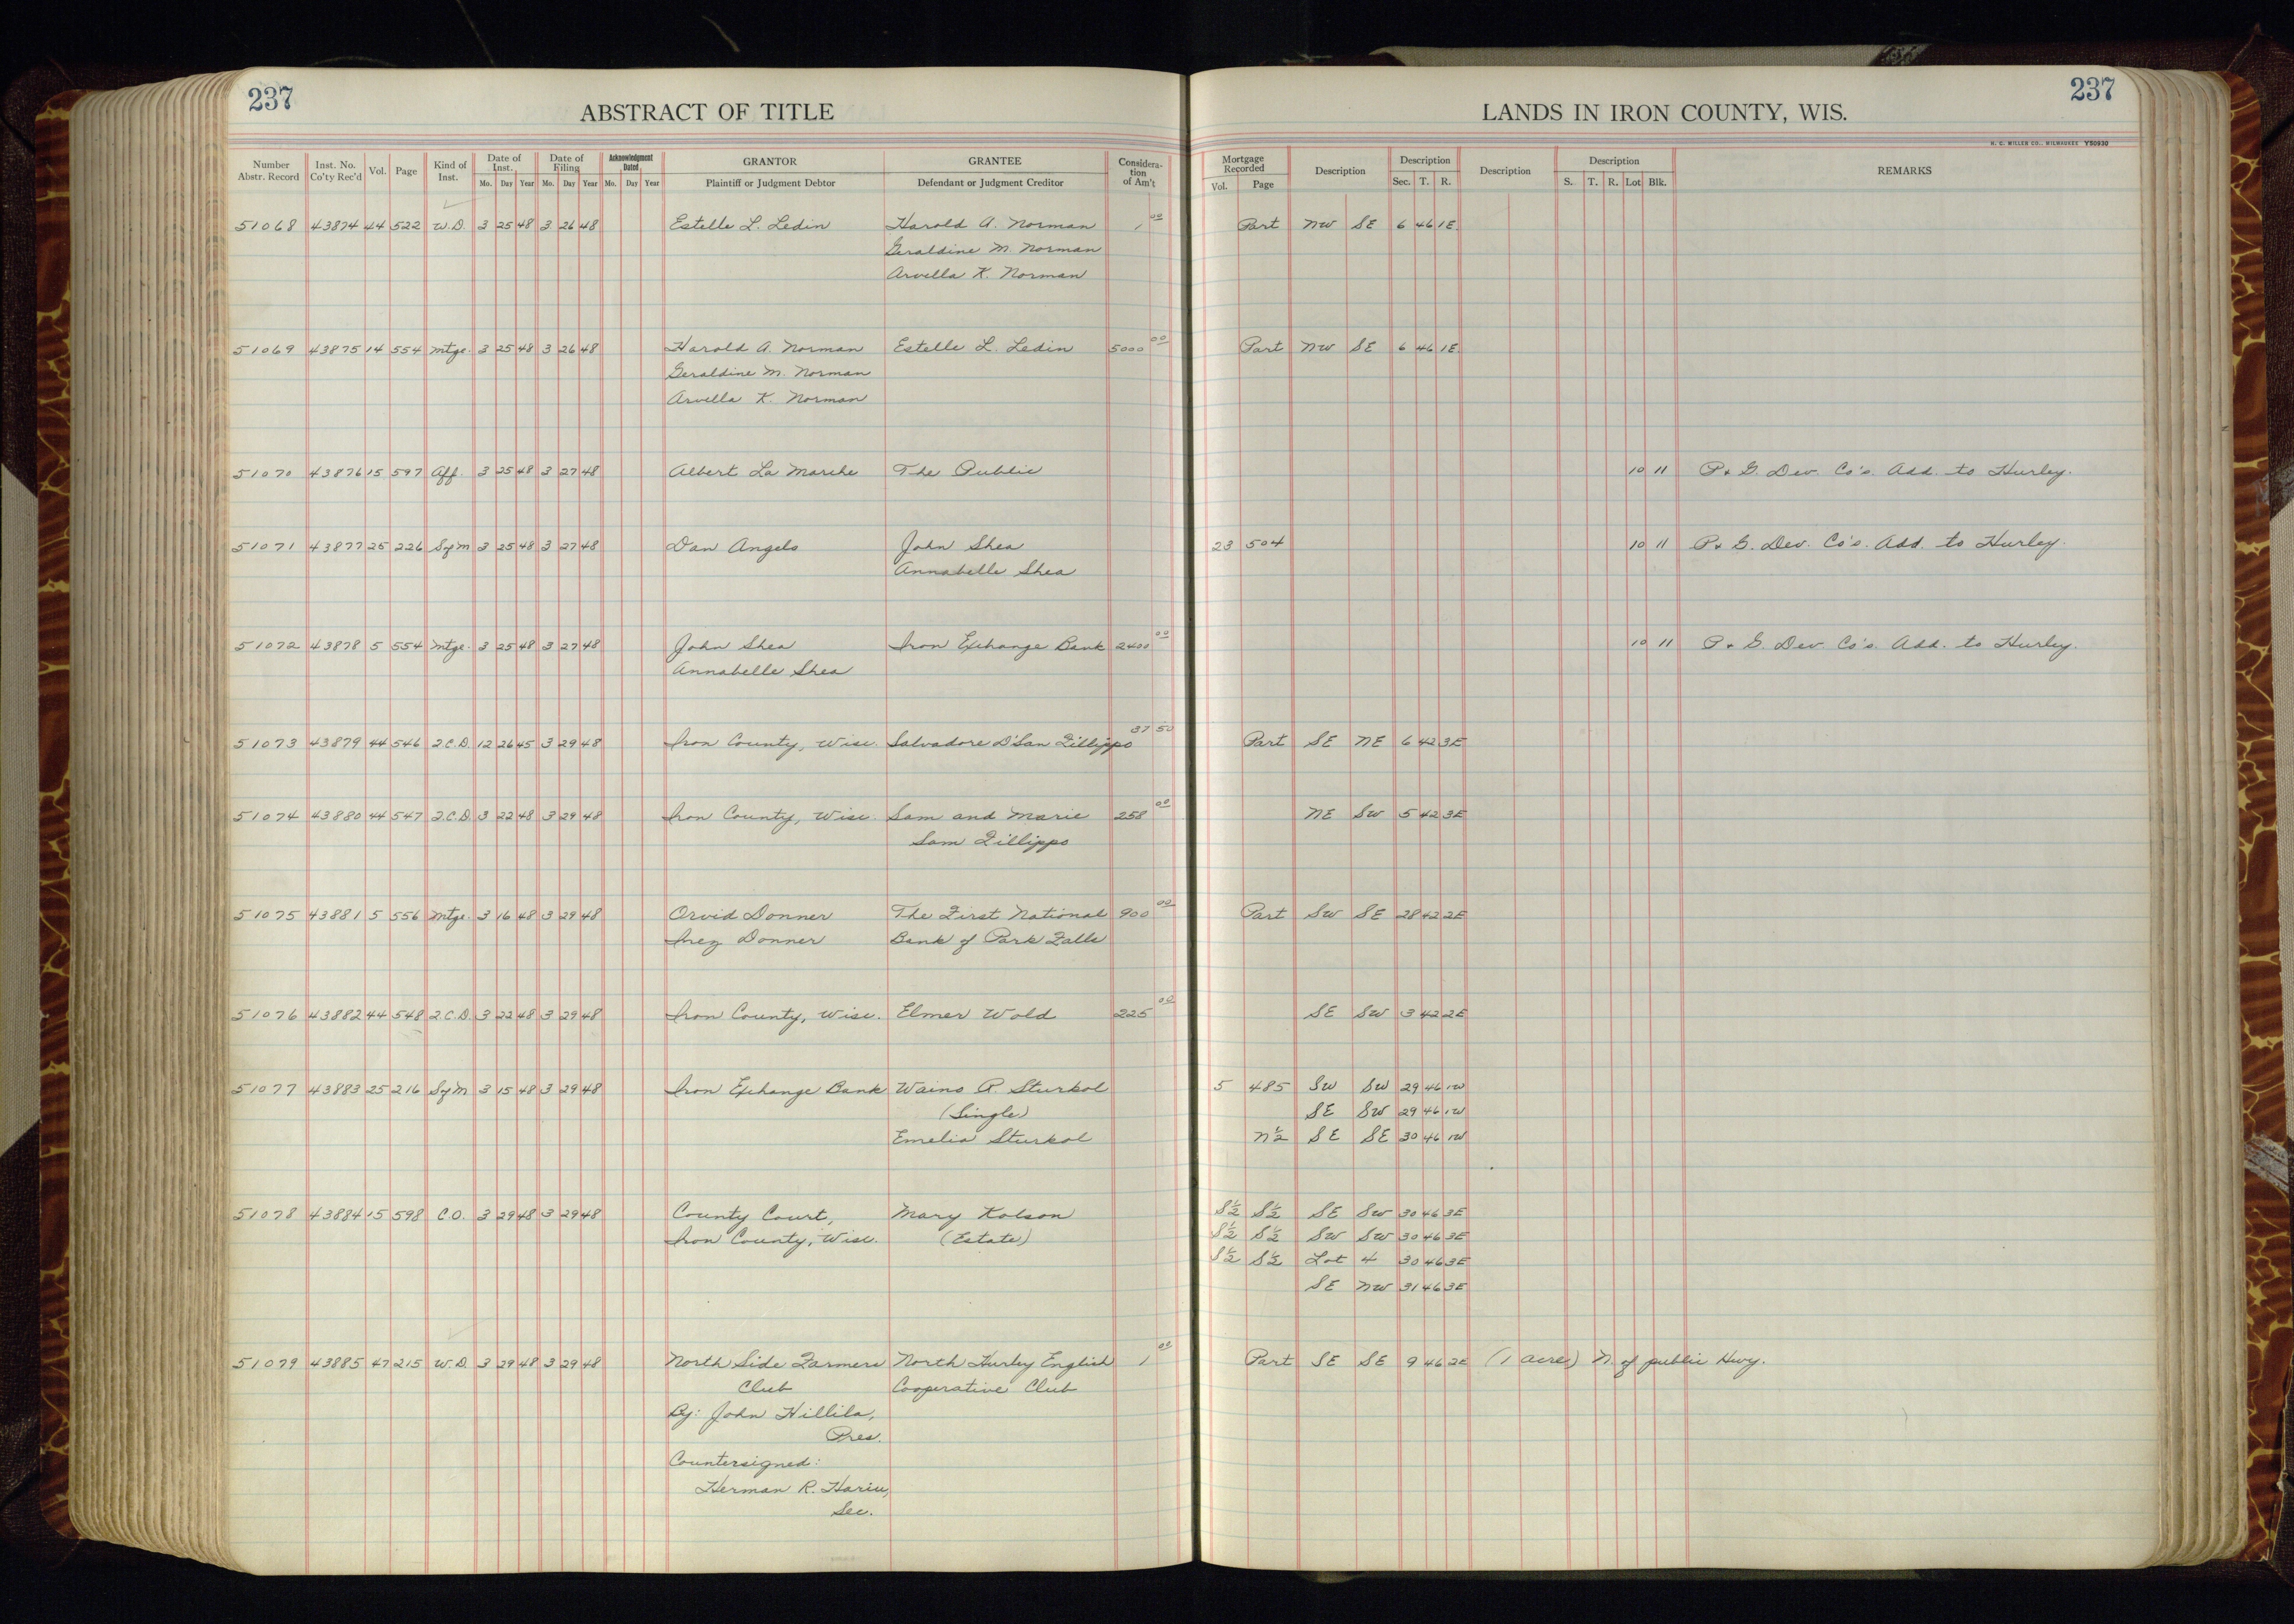 237
ABSTRACT OF TITLE
LANDS IN IRON COUNTY, WIS.
237
H. C. MILLER CO., MILWAUKEE Y50930
Number Abstr. Record | Inst. No. Co'ty Rec'd | Vol. | Page | Kind of Inst. | Date of Inst. Mo. Day Year | Date of Filing Mo. Day Year | Acknowledgment Dated Mo. Day Year | GRANTOR Plaintiff or Judgment Debtor | GRANTEE Defendant or Judgment Creditor | Considera-tion of Am't | Mortgage Recorded Vol. Page | Description | Description Sec. T. R. | Description | Description S. T. R. Lot Blk. | REMARKS
51068 43874 44 522 W.D. 3 25 48 3 26 48 Estelle L. Ledin Harold A. Norman 1 00 Part NW SE 6 46 1E.
Geraldine M. Norman
Arvella K. Norman
51069 43875 14 554 Mtge. 3 25 48 3 26 48 Harold A. Norman Estelle L. Ledin 5000 00 Part NW SE 6 46 1E.
Geraldine M. Norman
Arvella K. Norman
51070 43876 15 597 Aff. 3 25 48 3 27 48 Albert La Marche The Public 10 11 P. & G. Dev. Co's. Add. to Hurley.
51071 43877 25 226 SofM 3 25 48 3 27 48 Dan Angelo John Shea 23 504 10 11 P. & G. Dev. Co's. Add. to Hurley.
Annabelle Shea
51072 43878 5 554 Mtge. 3 25 48 3 27 48 John Shea Iron Exchange Bank 2400 00 10 11 P. & G. Dev. Co's. Add. to Hurley.
Annabelle Shea
51073 43879 44 546 2.C.D. 12 26 45 3 29 48 Iron County, Wisc. Salvadore D'San Fillippo 37 50 Part SE NE 6 42 3E
51074 43880 44 547 2.C.D. 3 22 48 3 29 48 Iron County, Wisc. Sam and Marie 258 00 NE SW 5 42 3E
Sam Fillippo
51075 43881 5 556 Mtge. 3 16 48 3 29 48 Orvid Donner The First National 900 00 Part SW SE 28 42 2E
Inez Donner Bank of Park Falls
51076 43882 44 548 2.C.D. 3 22 48 3 29 48 Iron County, Wisc. Elmer Wold 225 00 SE SW 3 42 2E
51077 43883 25 216 SofM 3 15 48 3 29 48 Iron Exchange Bank Waino R. Sturkol 5 485 SW SW 29 46 1W
(Single) SE SW 29 46 1W
Emelia Sturkol N½ SE SE 30 46 1W
51078 43884 15 598 C.O. 3 29 48 3 29 48 County Court, Mary Kolson S½ S½ SE SW 30 46 3E
Iron County, Wisc. (Estate) S½ S½ SW SW 30 46 3E
S½ S½ Lot 4 30 46 3E
SE NW 31 46 3E
51079 43885 47 215 W.D. 3 29 48 3 29 48 North Side Farmers North Hurley English 1 00 Part SE SE 9 46 2E (1 acre) N. of public Hwy.
Club Cooperative Club
By: John Hillila,
Pres.
Countersigned:
Herman R. Hariu,
Sec.